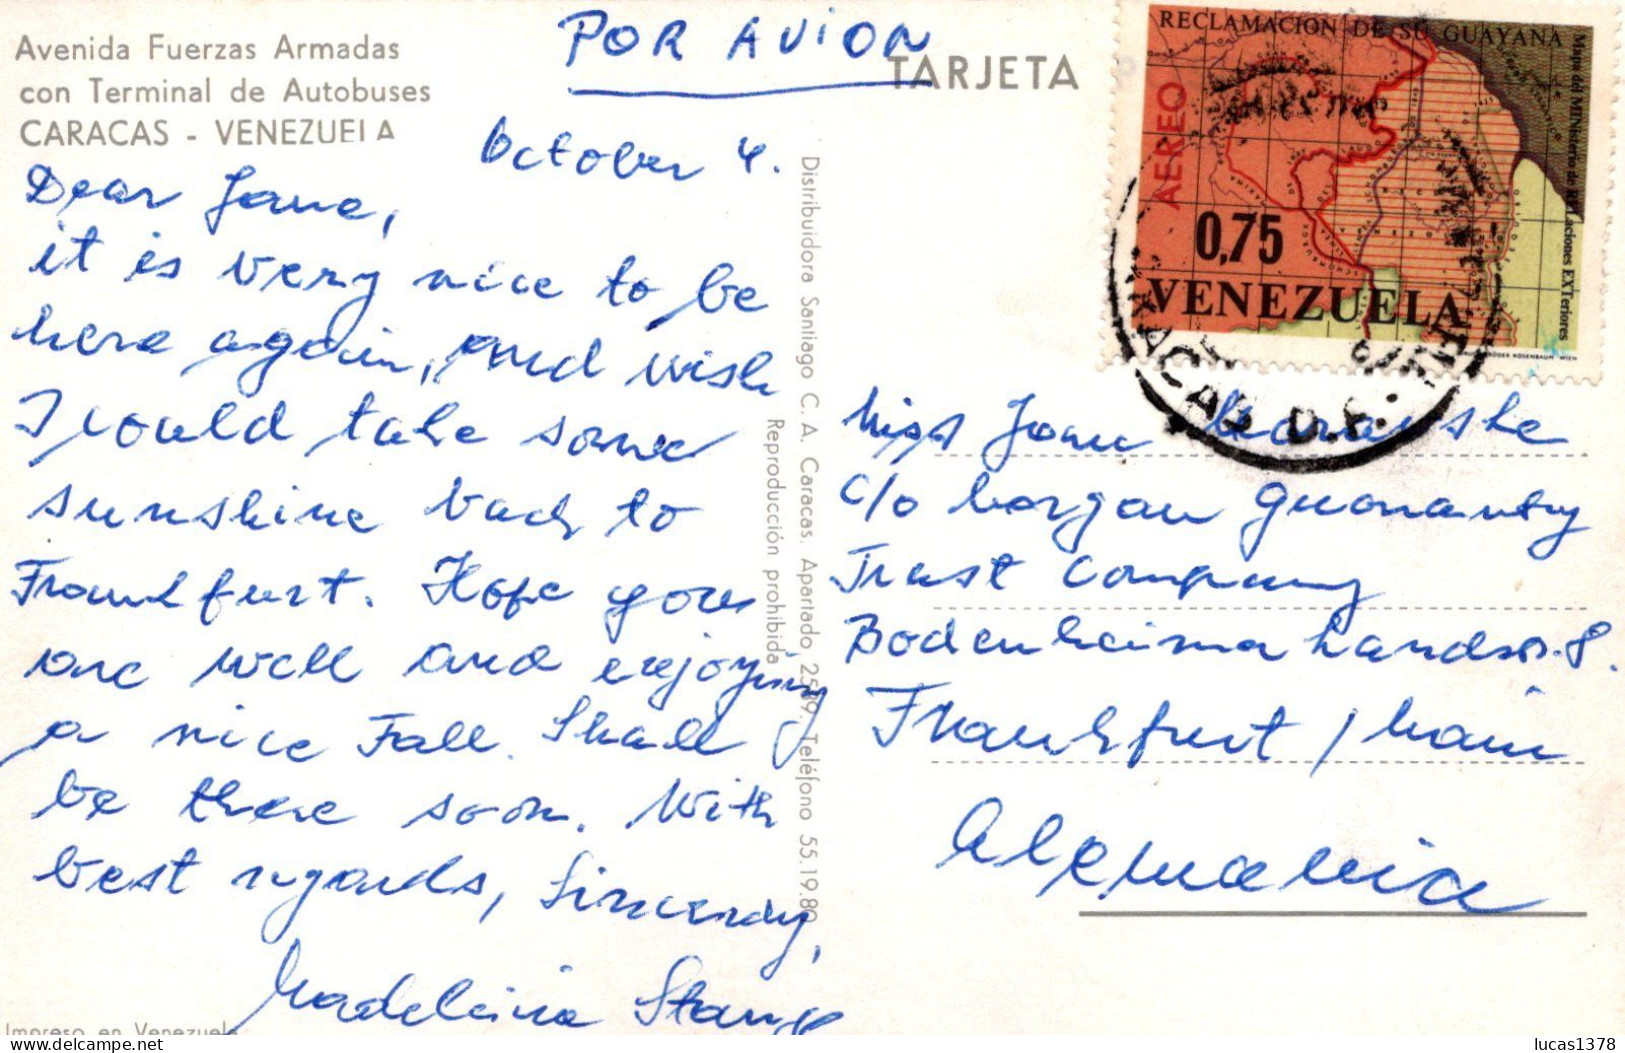 Avenida Fuerzas Armadas
con Terminal de Autobuses
CARACAS - VENEZUELA
POR AVION
TARJETA
October 4.
Dear Jane,
it is very nice to be
here again, and wish
I could take some
sunshine back to
Frankfurt. Hope you
are well and enjoying
a nice Fall. Shall
be there soon. With
best regards, Sincerely,
Madeleine
Impreso en Venezuela
Distribuidora Santiago C. A. Caracas. Apartado 2589. Teléfono 55.19.80
Reproducción prohibida
RECLAMACION DE SU GUAYANA
Mapa del MINisterio de RELaciones EXTeriores
AEREO
0,75
VENEZUELA
ROSENBAUM WIEN
CARACAS D.F.
Miss
c/o Morgan Guaranty
Trust Company
Bodenheimer Landstr. 8.
Frankfurt / Main
Alemania
lucas1378